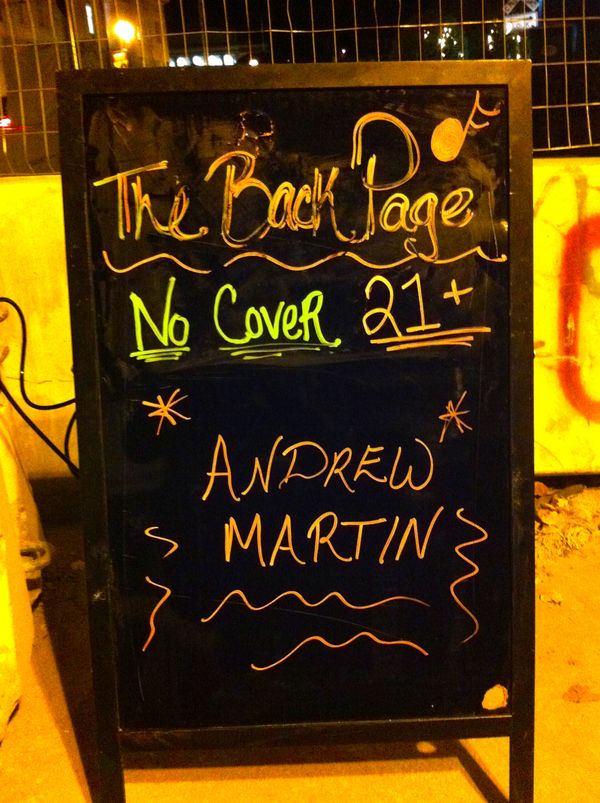 The Back Page
No Cover 21+
ANDREW
MARTIN